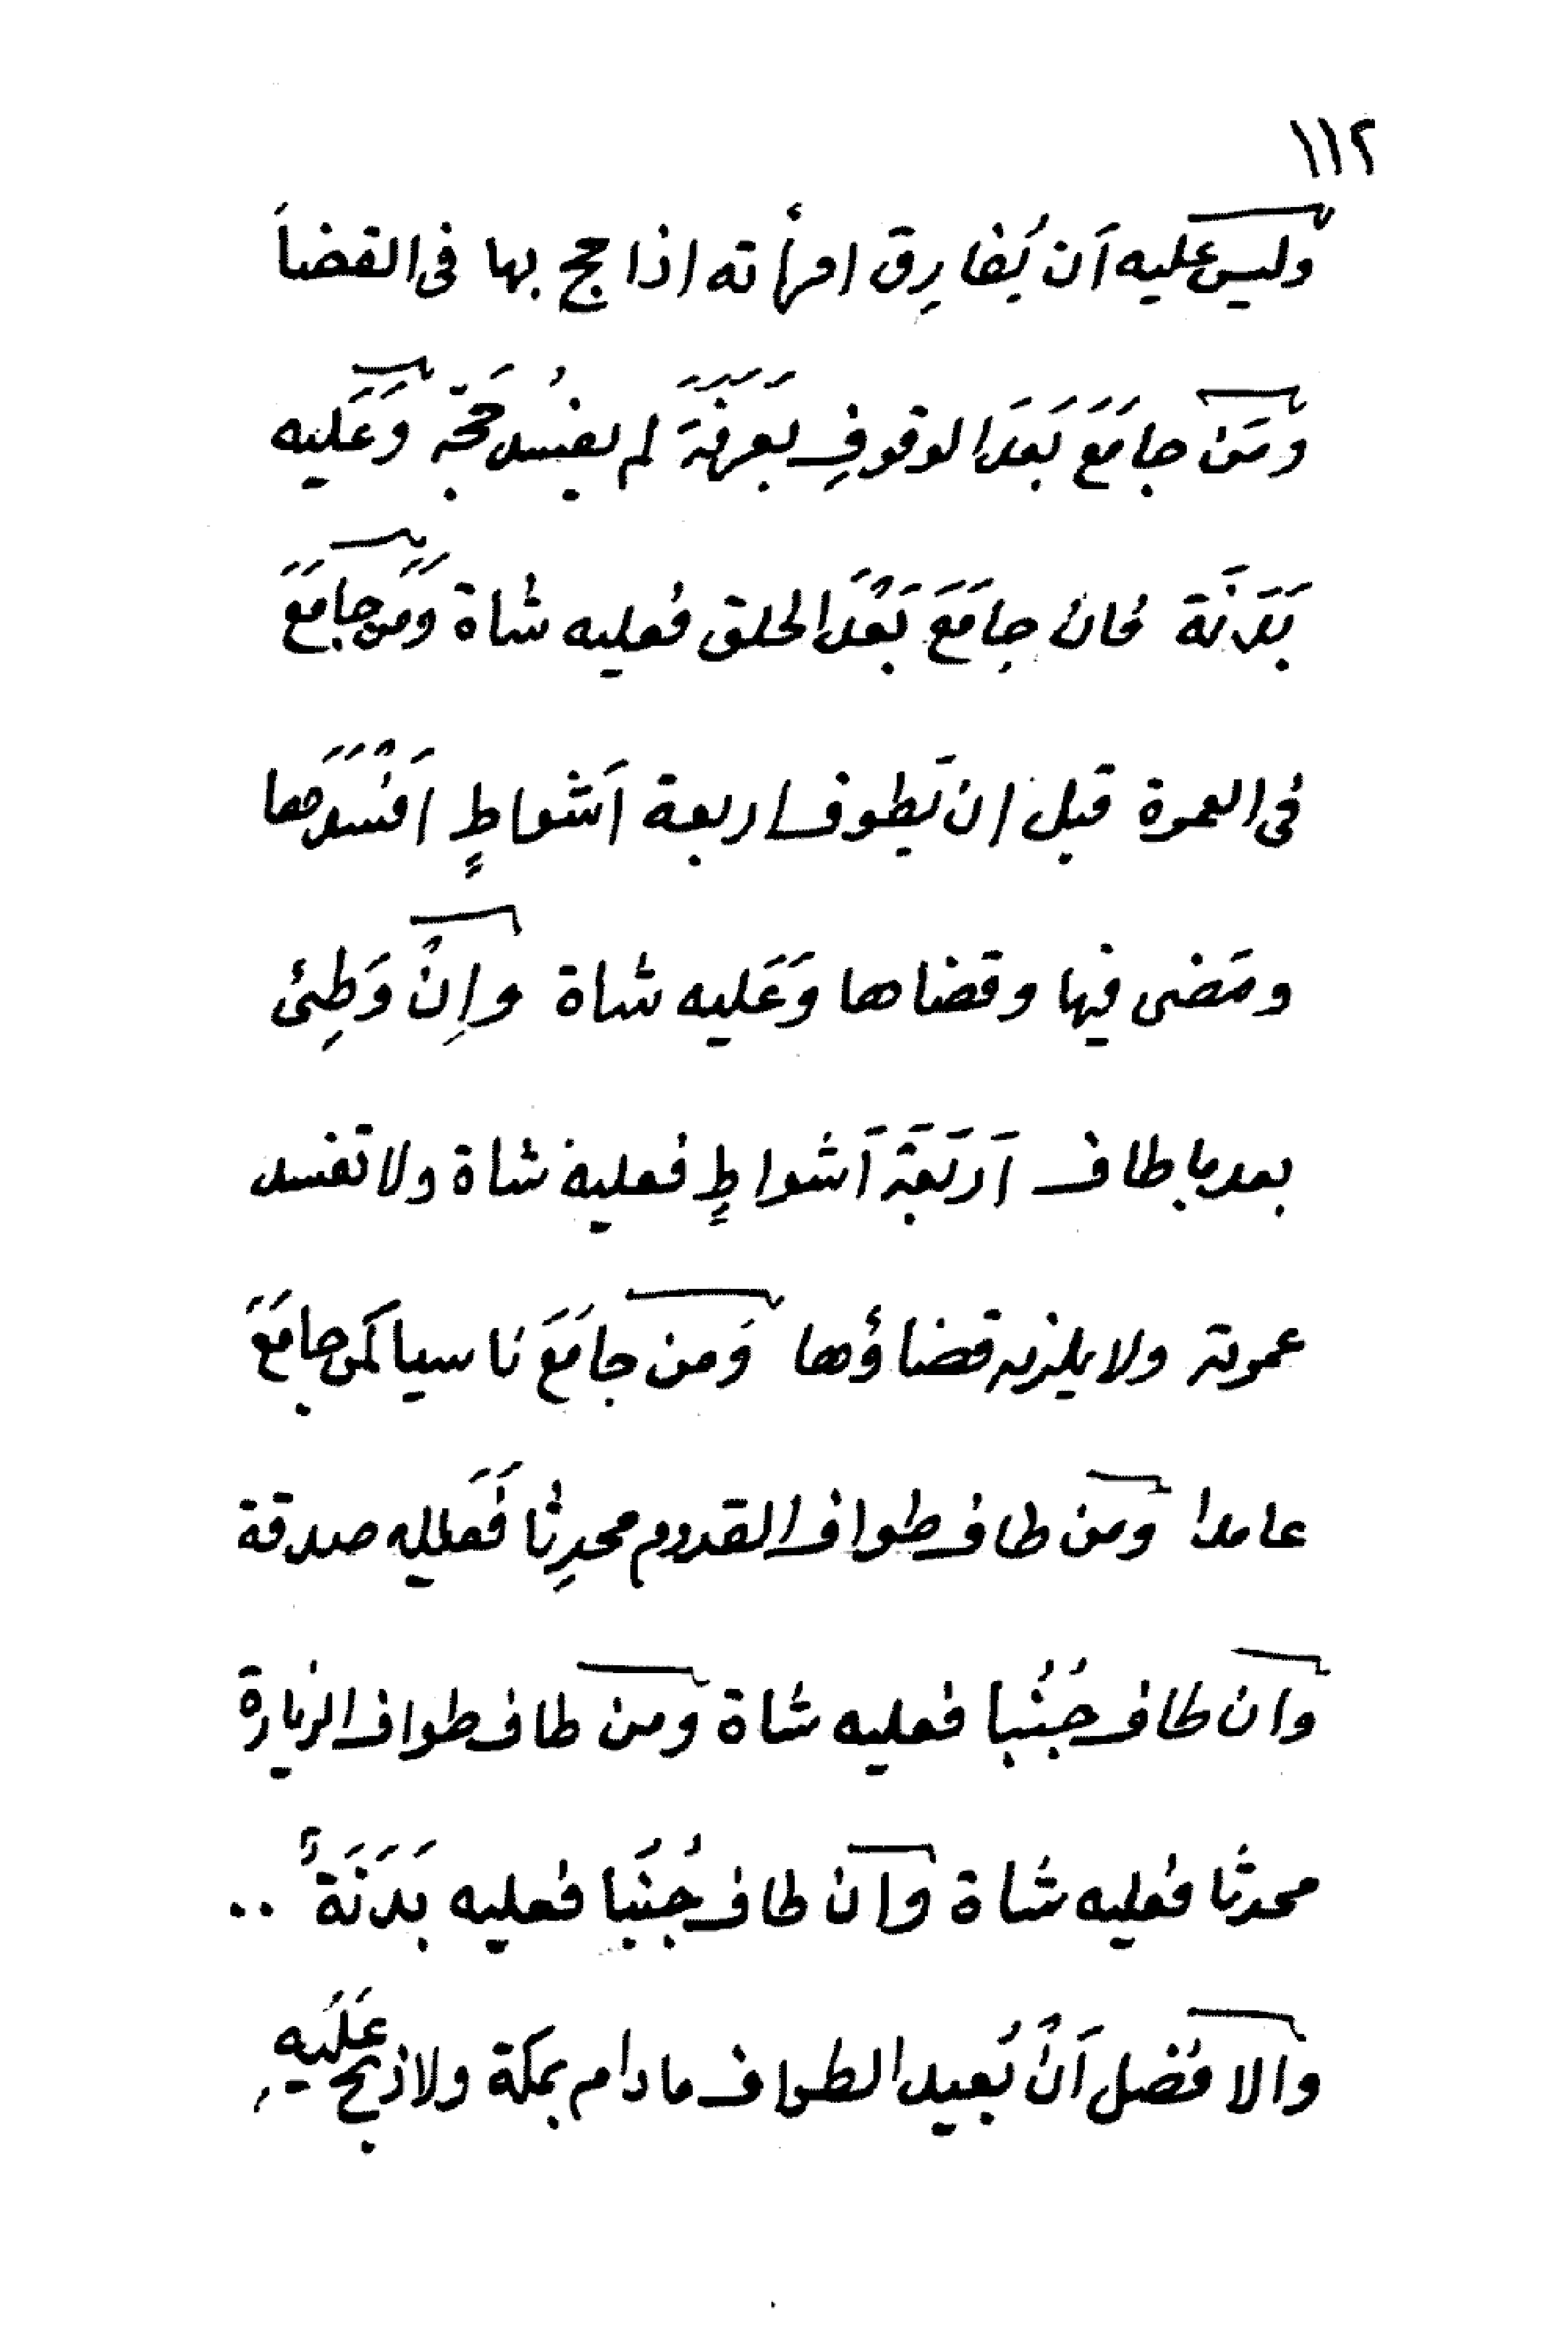 ١١٢
وليس عليه أن يُفارِق امرأته اذا حج بها فى القضاَ
ومَن جامَعَ بَعدَ الوقوفِ بعَرَفَةَ لم يفسُد حَجّه وَعَليه
بَدَنَة فان جامَعَ بَعْدَ الحلق فعليه شاة وَمَن جامَعَ
فى العمرة قبل ان يَطوف اربعة اَشواطٍ اَفْسَدَها
ومَضى فيها وقضاها وَعَليه شاة وإِنْ وَطِئ
بعد ما طاف اَربَعَة اَشواطٍ فعليه شاة ولا تفسد
عمرته ولا يلزمه قضاؤها وَمن جامَعَ ناسيا كمن جامَعَ
عامدا ومن طاف طواف القدوم محدِثا فَعَليه صدقة
وان طاف جُنُبا فعليه شاة ومن طاف طواف الزيارة
محدثا فعليه شاة وان طاف جُنُبا فعليه بَدَنَةٌ ..
والافضل اَنْ يُعيد الطواف مادام بمكة ولا ذبح عَلَيهِ